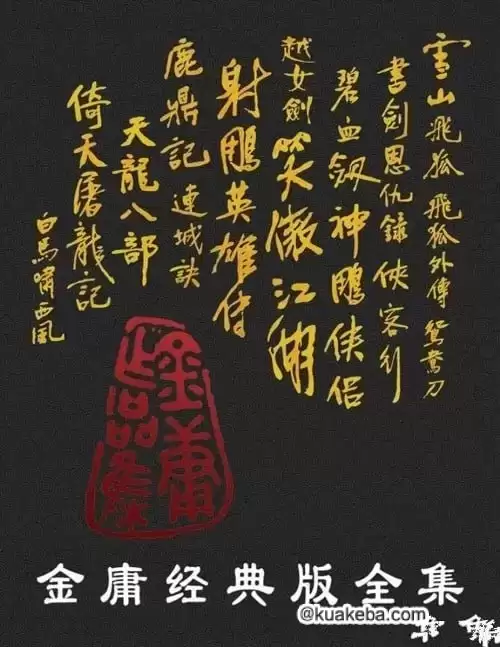 雪山飛狐 飛狐外傳 鴛鴦刀
書劍恩仇錄 俠客行
碧血劍 神鵰俠侶
越女劍 笑傲江湖
射鵰英雄傳
鹿鼎記 連城訣
天龍八部
倚天屠龍記
白馬嘯西風
金庸
作品集
金庸经典版全集
@kuakeba.com